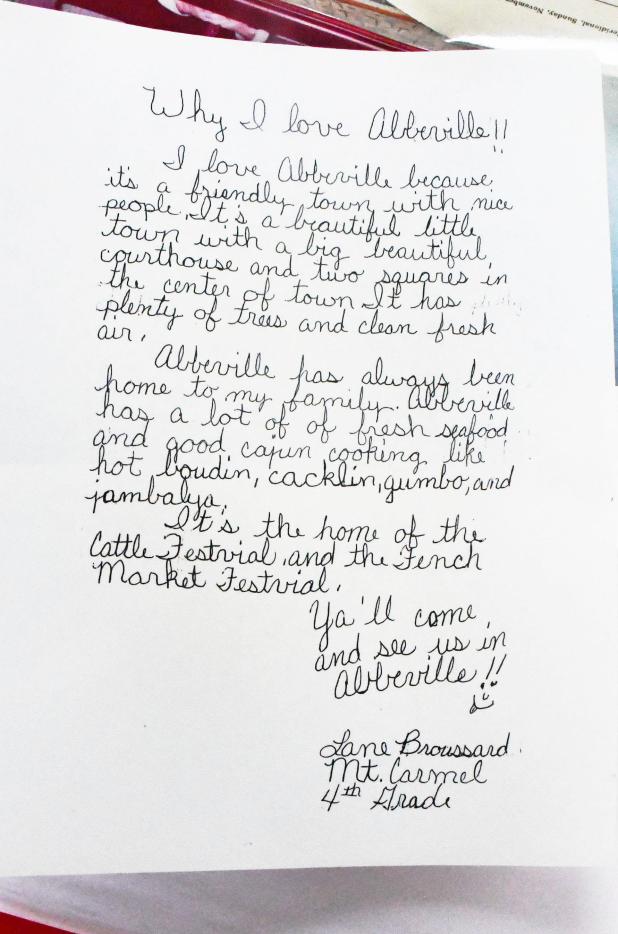 eridional, Sunday, November
Why I love Abbeville!!
I love Abbeville because
it's a friendly town with nice
people. It's a beautiful little
town with a big beautiful
courthouse and two squares in
the center of town It has
plenty of trees and clean fresh
air.
Abbeville has always been
home to my family. Abbeville
has a lot of of fresh seafood
and good cajun cooking like
hot boudin, cacklin, gumbo, and
jambalya.
It's the home of the
Cattle Festvial, and the Fench
Market Festvial.
Ya'll come
and see us in
Abbeville!!
Lane Broussard
Mt. Carmel
4th Grade